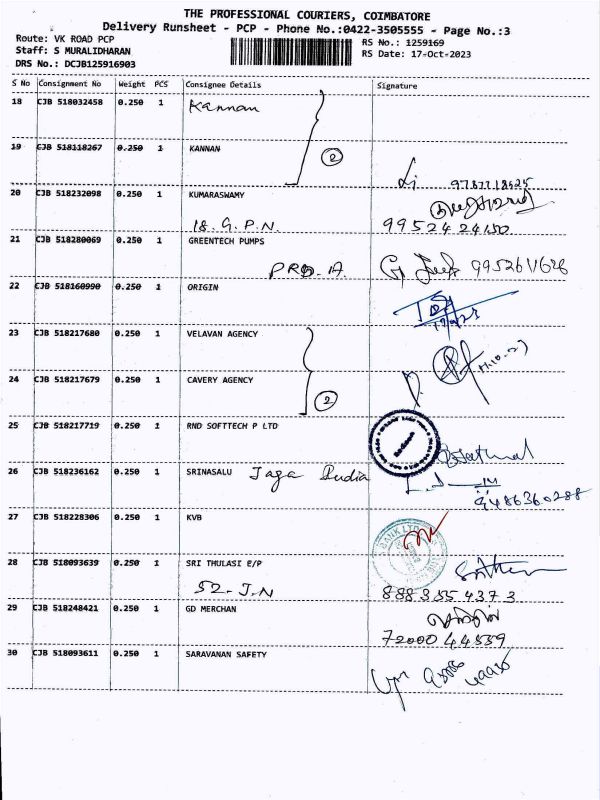 THE PROFESSIONAL COURIERS, COIMBATORE
Delivery Runsheet - PCP - Phone No.:0422-3505555 - Page No.:3
Route: VK ROAD PCP RS No.: 1259169
Staff: S MURALIDHARAN RS Date: 17-Oct-2023
DRS No.: DCJB125916903
S No Consignment No Weight PCS Consignee Details Signature
18 CJB 518032458 0.250 1 Kannan
19 CJB 518118267 0.250 1 KANNAN
2
20 CJB 518232098 0.250 1 KUMARASWAMY
18. G. P. N. 9952424150
21 CJB 518280069 0.250 1 GREENTECH PUMPS
22 CJB 518160990 0.250 1 ORIGIN
23 CJB 518217680 0.250 1 VELAVAN AGENCY
24 CJB 518217679 0.250 1 CAVERY AGENCY
2
25 CJB 518217719 0.250 1 RND SOFTTECH P LTD
26 CJB 518236162 0.250 1 SRINASALU Jaga India
9486360288
27 CJB 518228306 0.250 1 KVB
BANK LTD
28 CJB 518093639 0.250 1 SRI THULASI E/P
52. J.N 8883554373
29 CJB 518248421 0.250 1 GD MERCHAN
7200044559
30 CJB 518093611 0.250 1 SARAVANAN SAFETY